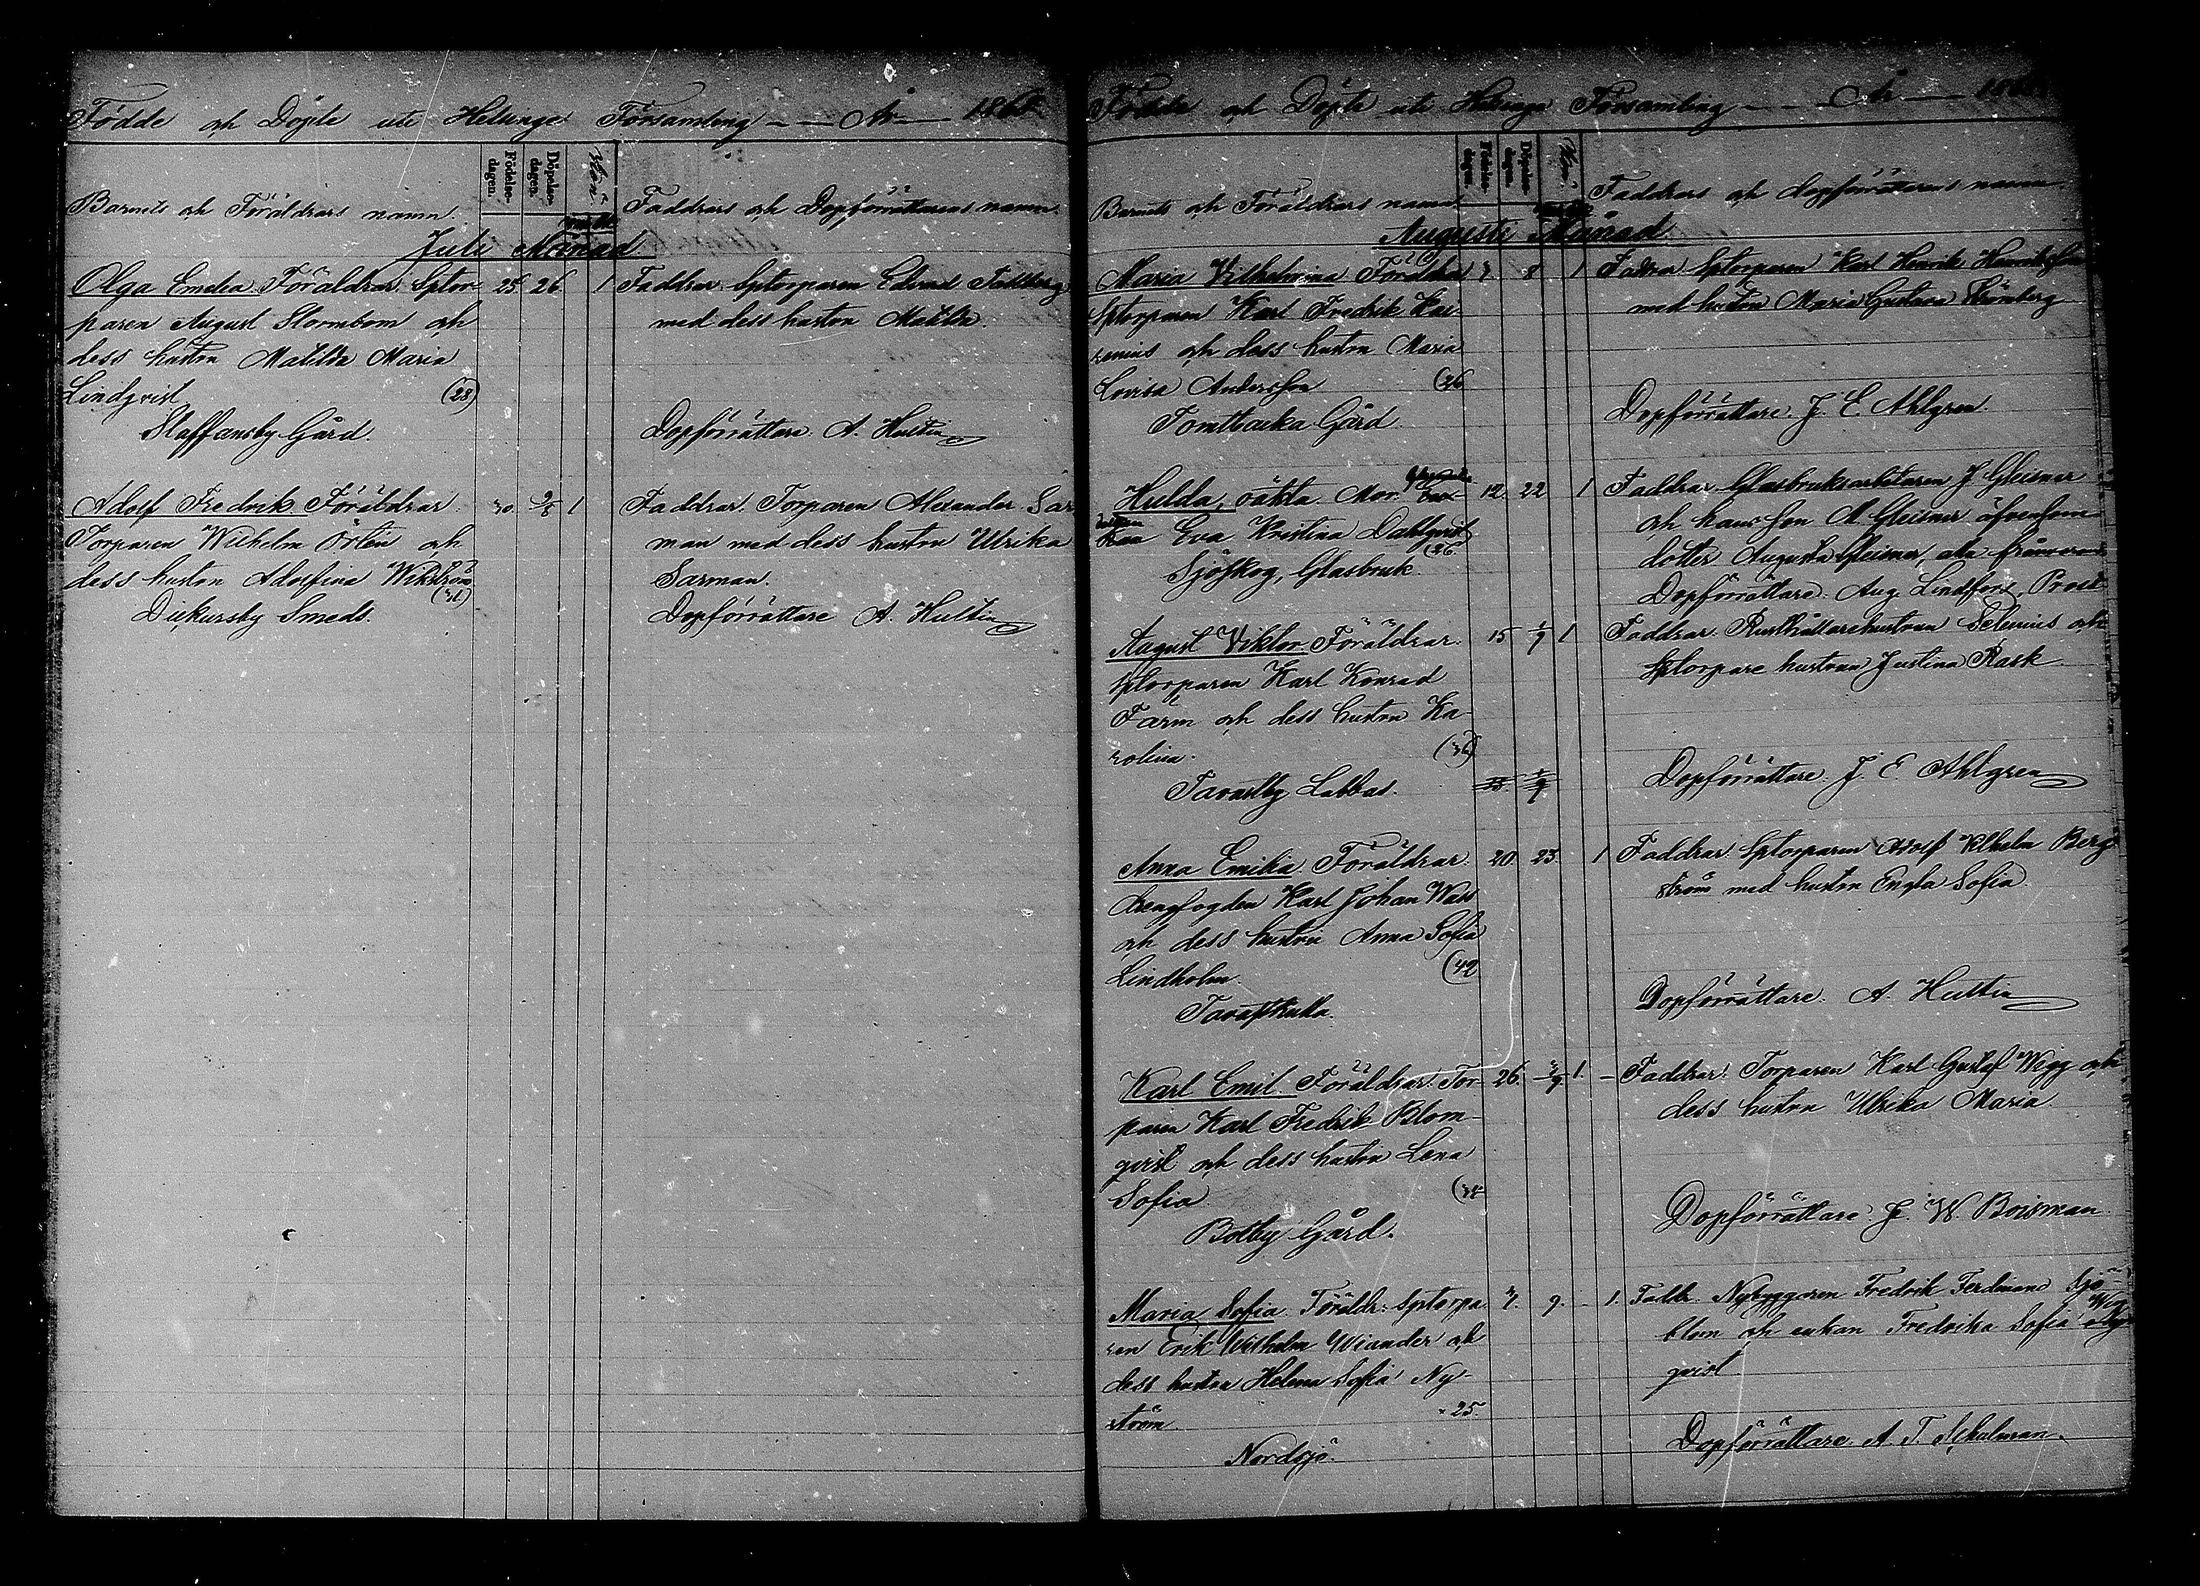 Födde och Döpte uti Helsinge Församling - - År - 186
Barnets och Föräldrars namn.
Födelse-dagen.
Döpelse-dagen.
Kön
Faddrars och Dopförrättarens namn.
Juli Månad
Olga Emelia. Föräldrar: Sptor- 25. 26. 1
paren August Stormbom och
dess hustru Matilda Maria
Lindqvist (28)
Staffansby Gård.
Faddrar: Sptorparen Edvard
med dess hustru Matilda.
Dopförrättare. A. Hultin
Adolf Fredrik. Föräldrar. 30. 2/8 1
Torparen Wilhelm Örlén och
dess hustru Adolfina Wikström
Dickursby Smeds.
Faddrar. Torparen Alexander Sar
man med dess hustru Ulrika
Sarman.
Dopförrättare A. Hultin
Födde och Döpte uti Helsinge Församling - - År - 186
Barnets och Föräldrars namn
Födelse-dagen.
Döpelse-dagen.
Kön
Faddrars och dopförrättarens namn.
Augusti Månad
Maria Vilhelmina Föräldrar 7. 8 1
Sptorparen Karl Fredrik Kai-
renius och dess hustru Maria
Lovisa Andersson (26
Tomtbacka Gård.
Faddrar Sptorparen Karl Henrik Henriksson
med hustru Maria Gustava Strömberg
Dopförrättare. J. E. Ahlgren.
Hulda, oäkta. Mor. 12. 22 1
Eva Kristina Dahlqvist
(26.
Sjöskog, Glasbruk.
Faddrar Glasbruksarbetaren J. Gleisner
och hans son A. Gleisner äfvensom
dotter Augusta Gleisner, alla från
Dopförrättare. Aug. Lindfors, Prost
August Viktor. Föräldrar. 15 1/9 1
Sptorparen Karl Konrad
Färm och dess hustru Ka-
rolina. (36)
Tavastby Labbas.
Faddrar. Rusthållarehustrun Selenius och
Sptorpare hustrun Justina Rask.
Dopförrättare. J. E. Ahlgren
Anna Emilia. Föräldrar. 20. 23. 1
drengfogden Karl Johan Wass
och dess hustru Anna Sofia
Lindholm. (42
Tavastkulla.
Faddrar. Sptorparen Adolf Vilhelm Berg-
ström med hustru Engla Sofia.
Dopförrättare. A. Hultin
Karl Emil. Föräldrar. Tor- 26. 2/9 1. -
paren Karl Fredrik Blom-
qvist och dess hustru Lena
Sofia
Botby Gård.
Faddrar. Torparen Karl Gustaf Wigg och
dess hustru Ulrika Maria.
Dopförrättare J. W Boisman
Maria Sofia. Föräldr. Sptorpa 7. 9. - 1.
ren Erik Wilhelm Wiander och
dess hustru Helena Sofia Ny-
ström 25.
Nordsjö.
Faddr. Nybyggaren Fredrik Ferdinand Sjö-
blom och enkan Fredrika Sofia
qvist.
Dopförrättare. A. T. Schulman.